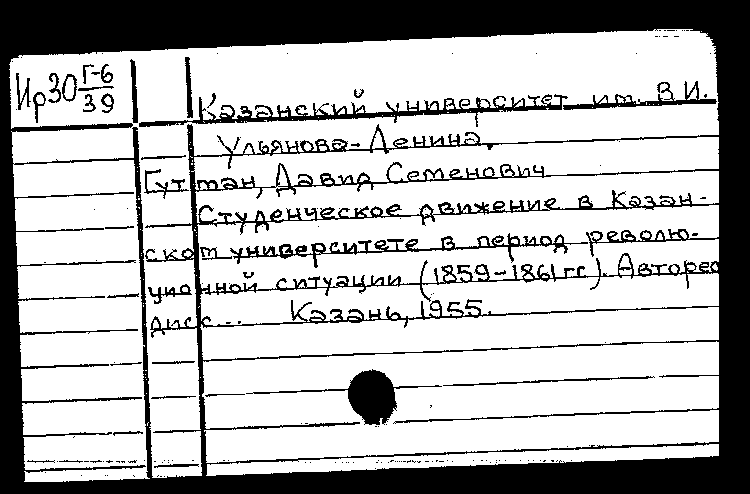 Ир30 Г-6/39
Казанский университет им. В.И.
Ульянова-Ленина.
Гутман, Давид Семенович
Студенческое движение в Казан-
ском университете в период револю-
ционной ситуации (1859-1861 гг). Авторео
дисс... Казань, 1955.